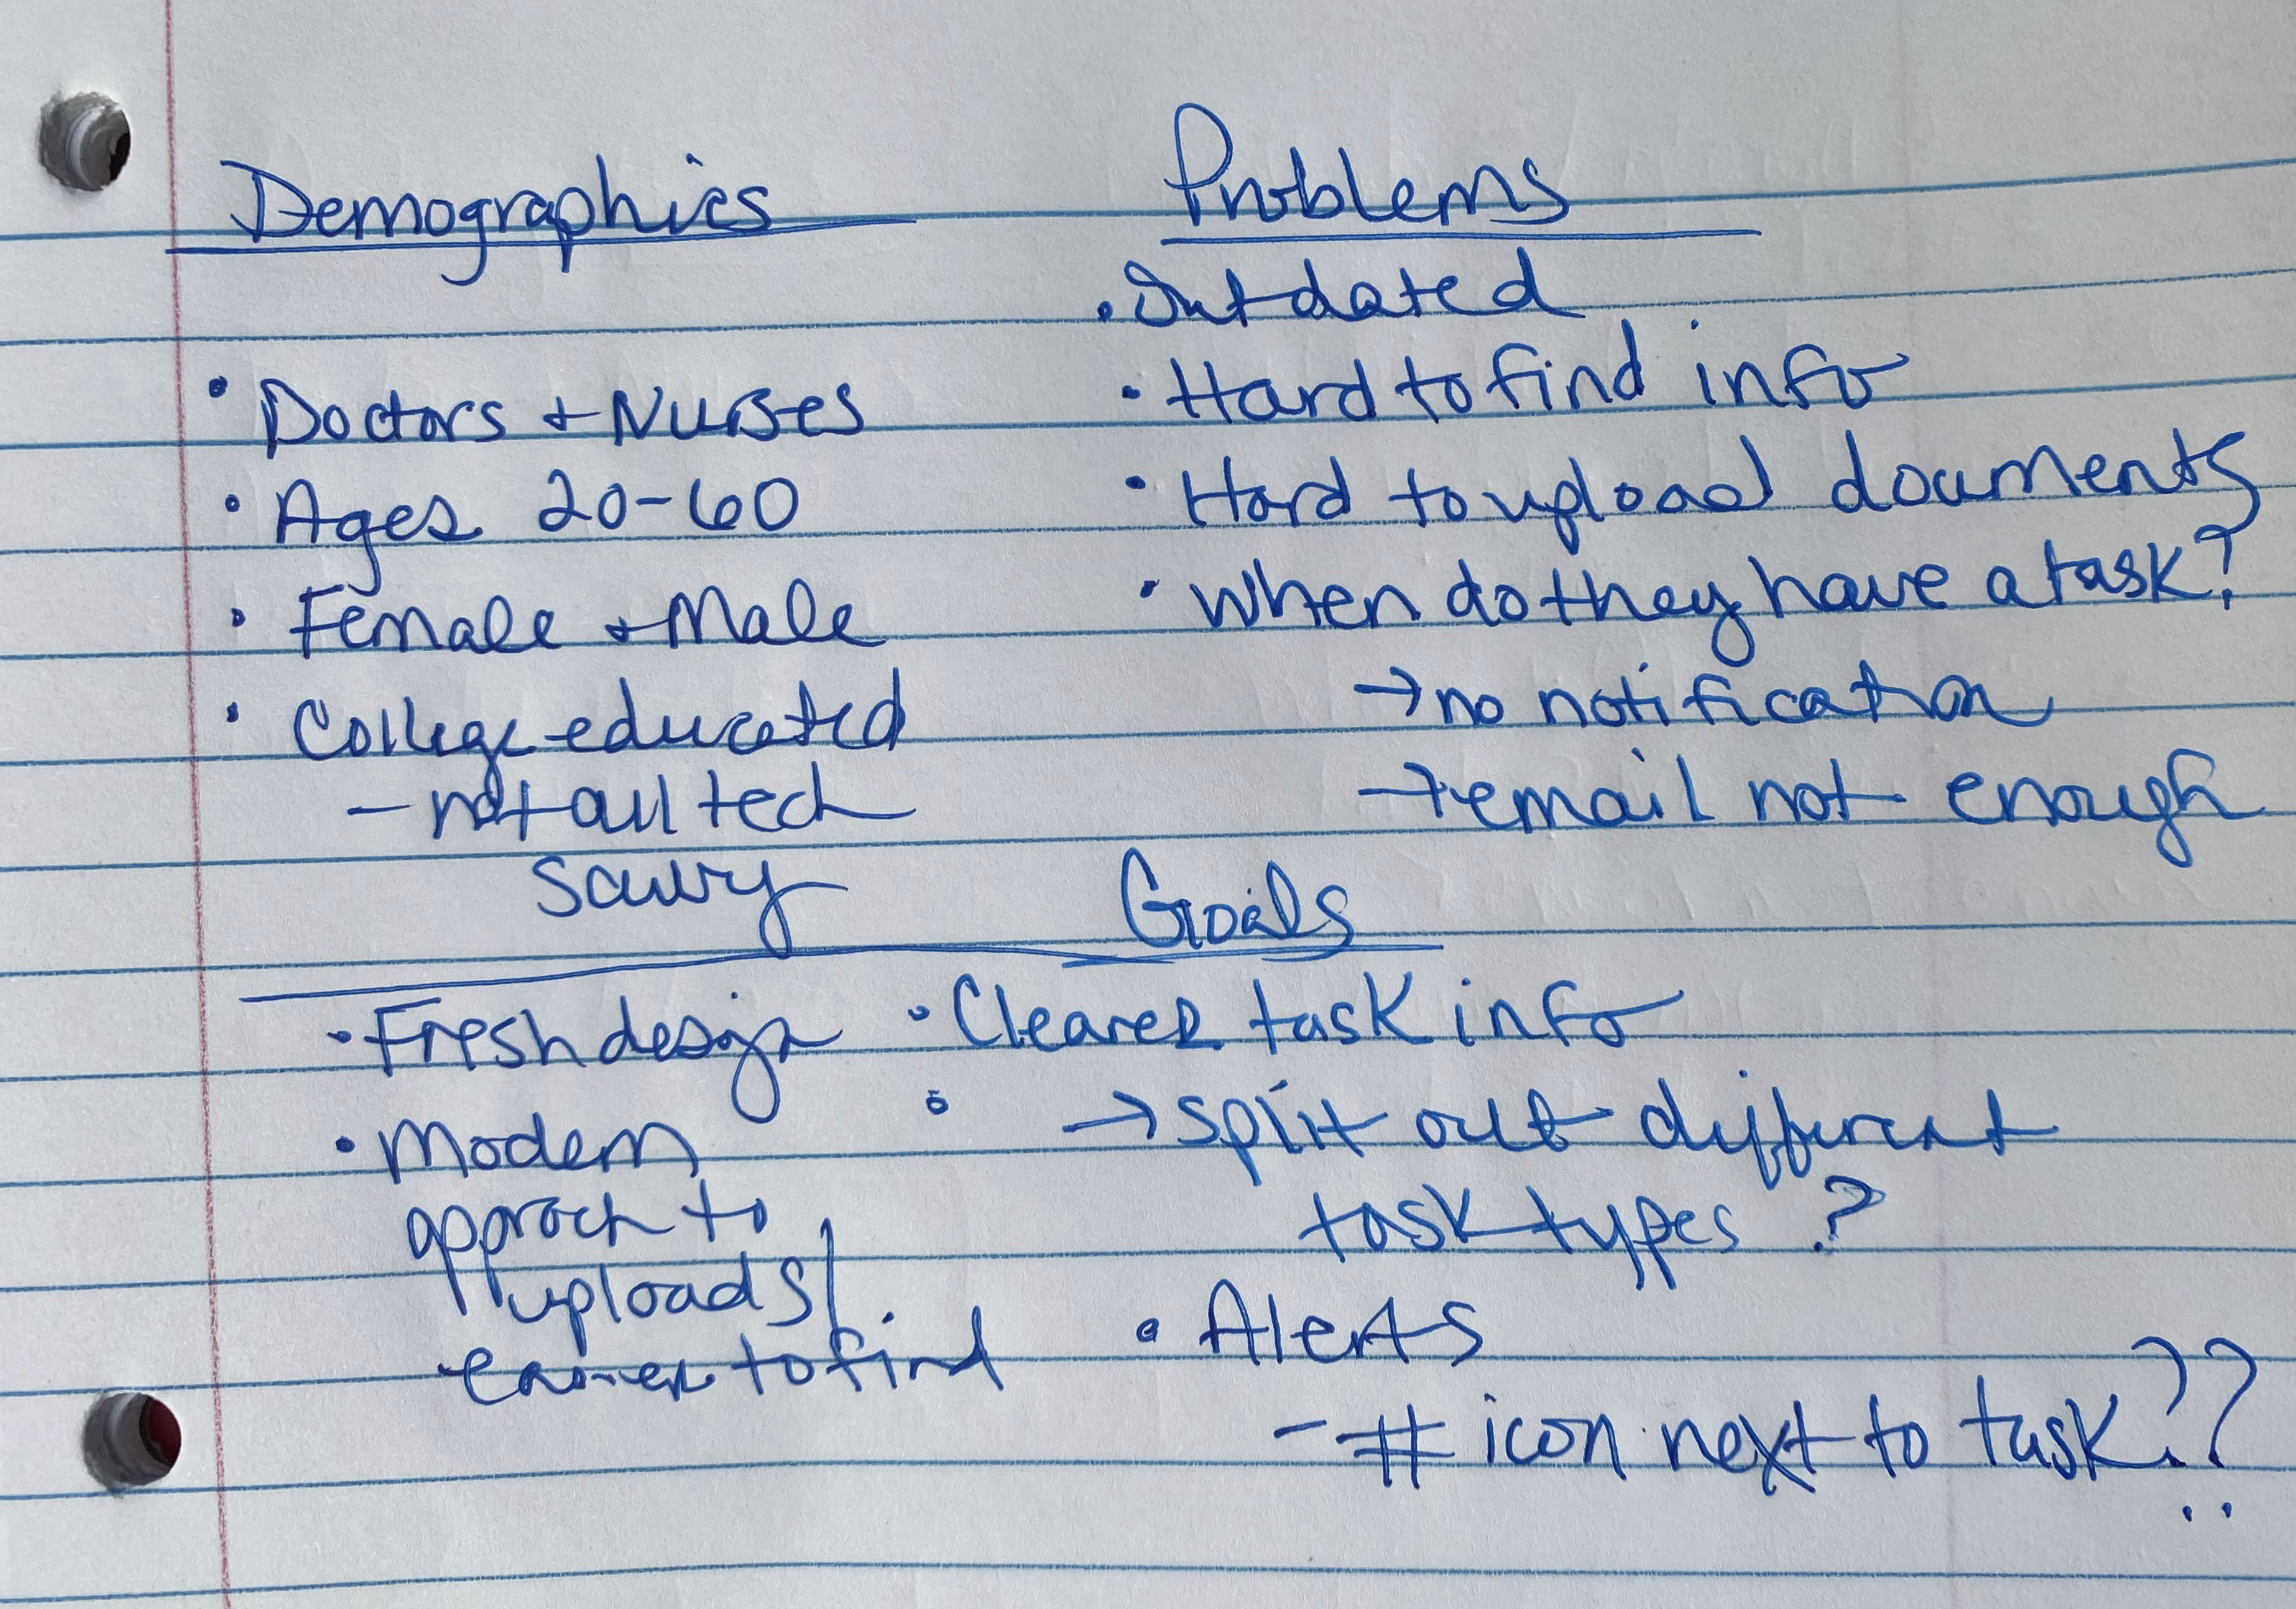 Demographics
• Doctors + Nurses
• Ages 20-60
• Female + Male
• College educated
- not all tech
savvy
Problems
• Outdated
• Hard to find info
• Hard to upload documents
• When do they have a task?
→ no notification
→ email not enough
Goals
• Fresh design
• Modern
approch to
uploads/
easier to find
• Clearer task info
• → split out different
task types?
• Alerts
- # icon next to task??